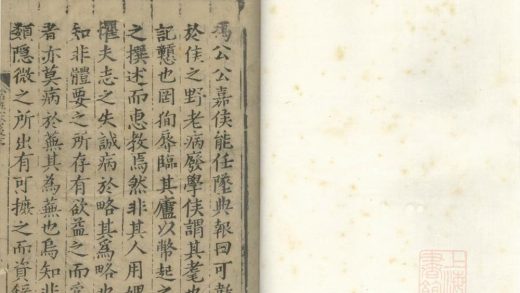 馮公公嘉侯能任墜典報曰可
於侯之野老病廢學侯謂其耄也
記憩也罔徇辱臨其廬以幣起之
之撰述而惠教焉然非其人用
懼夫志之失誠病於略其爲略也
知非體要之所存有欲益之而
者亦莫病於蕪其爲蕪也烏知非
類隱微之所出有可摭之而資
上海
書